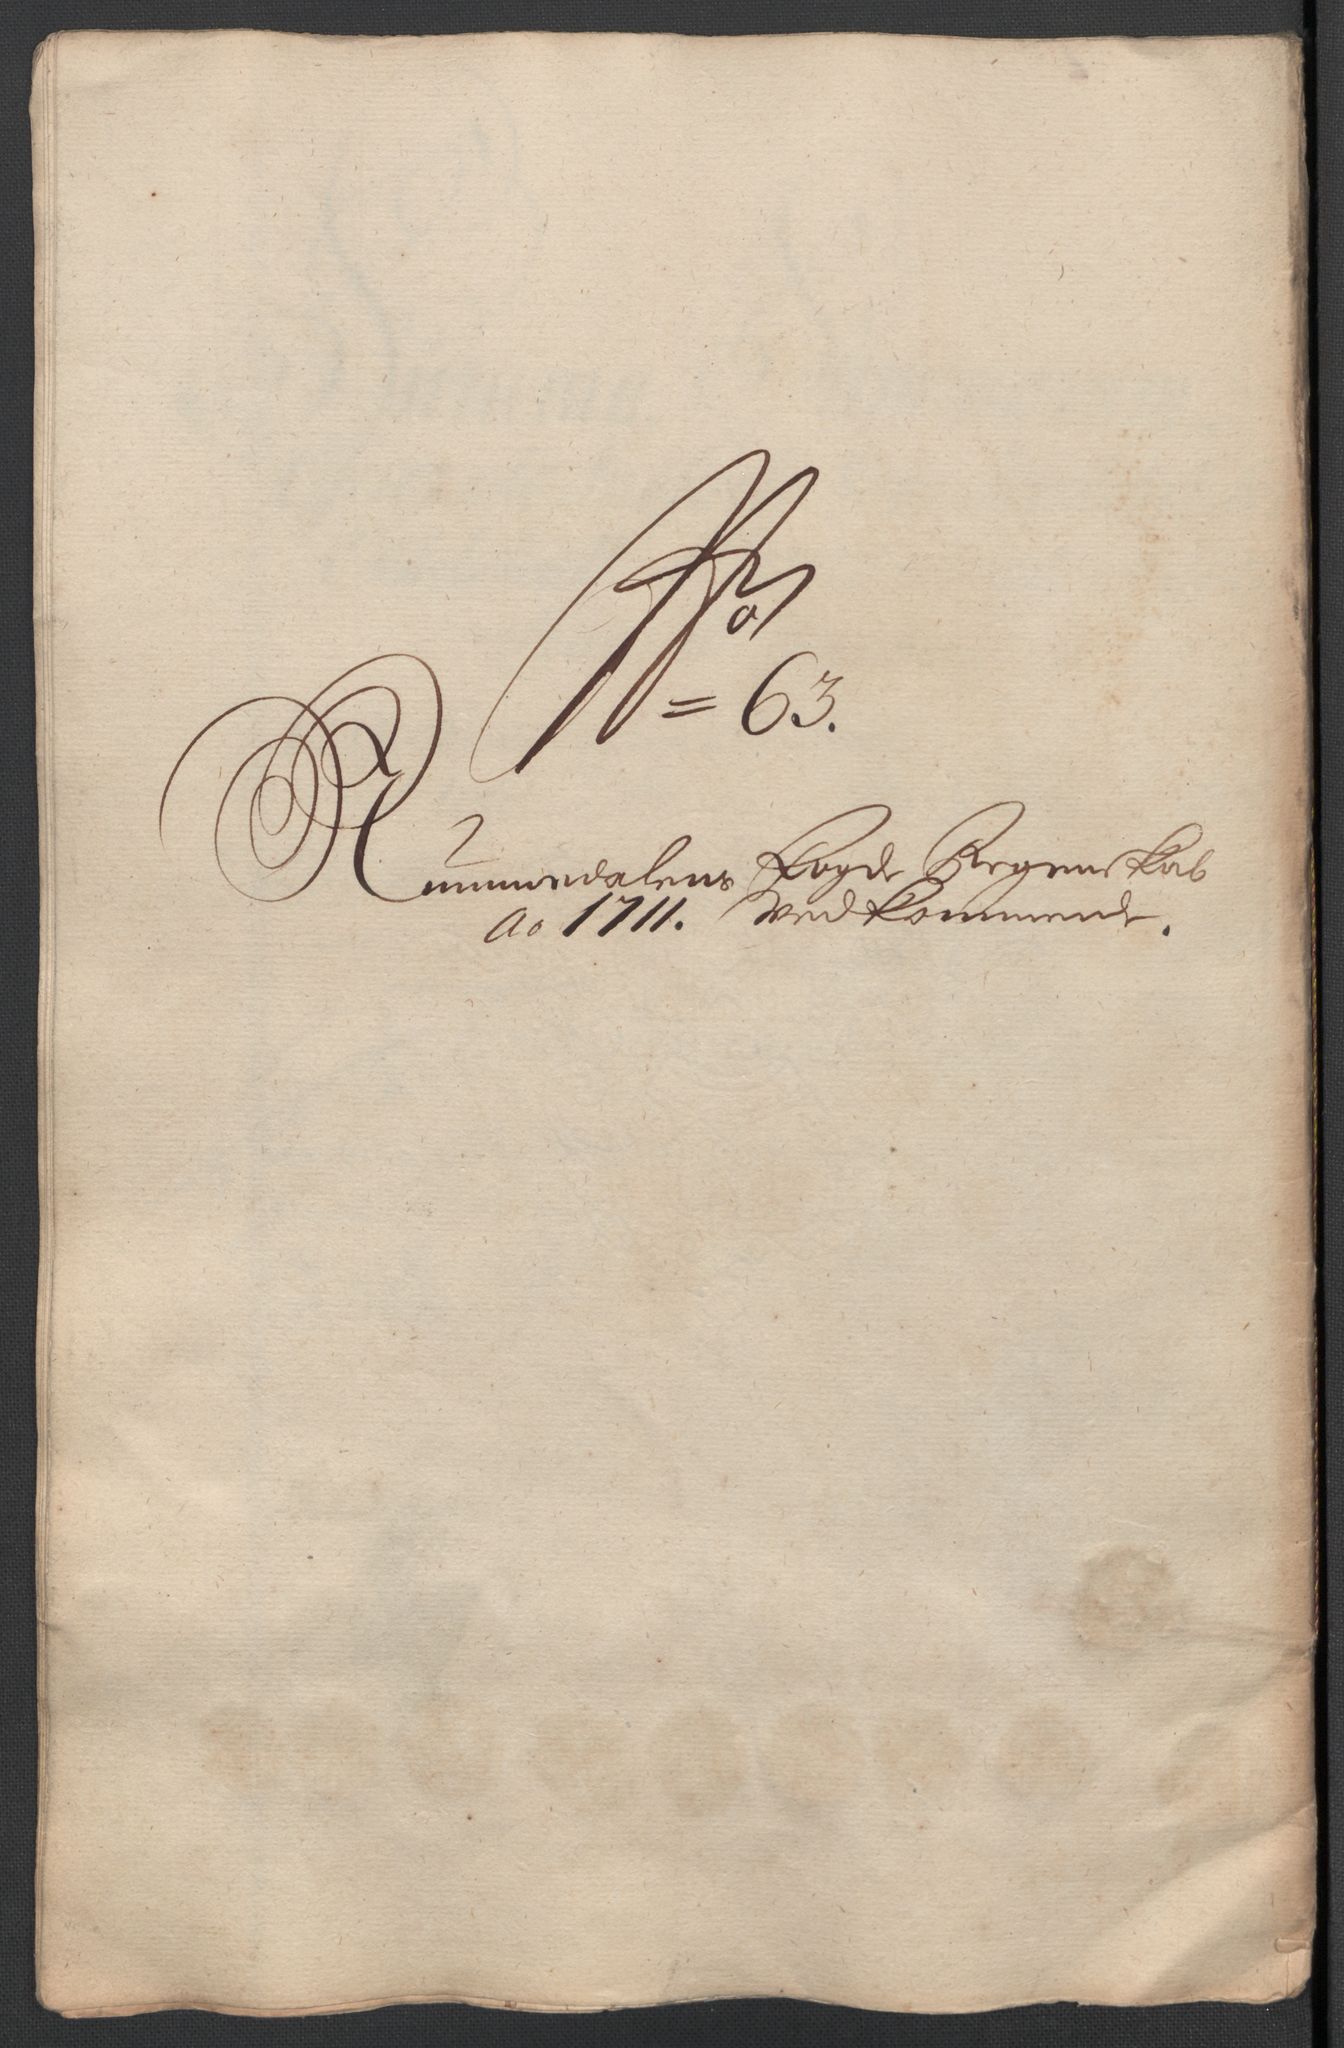 No
= 63.
Nummedalens Fogde Regenskab
Ao 1711. Vedkommende.